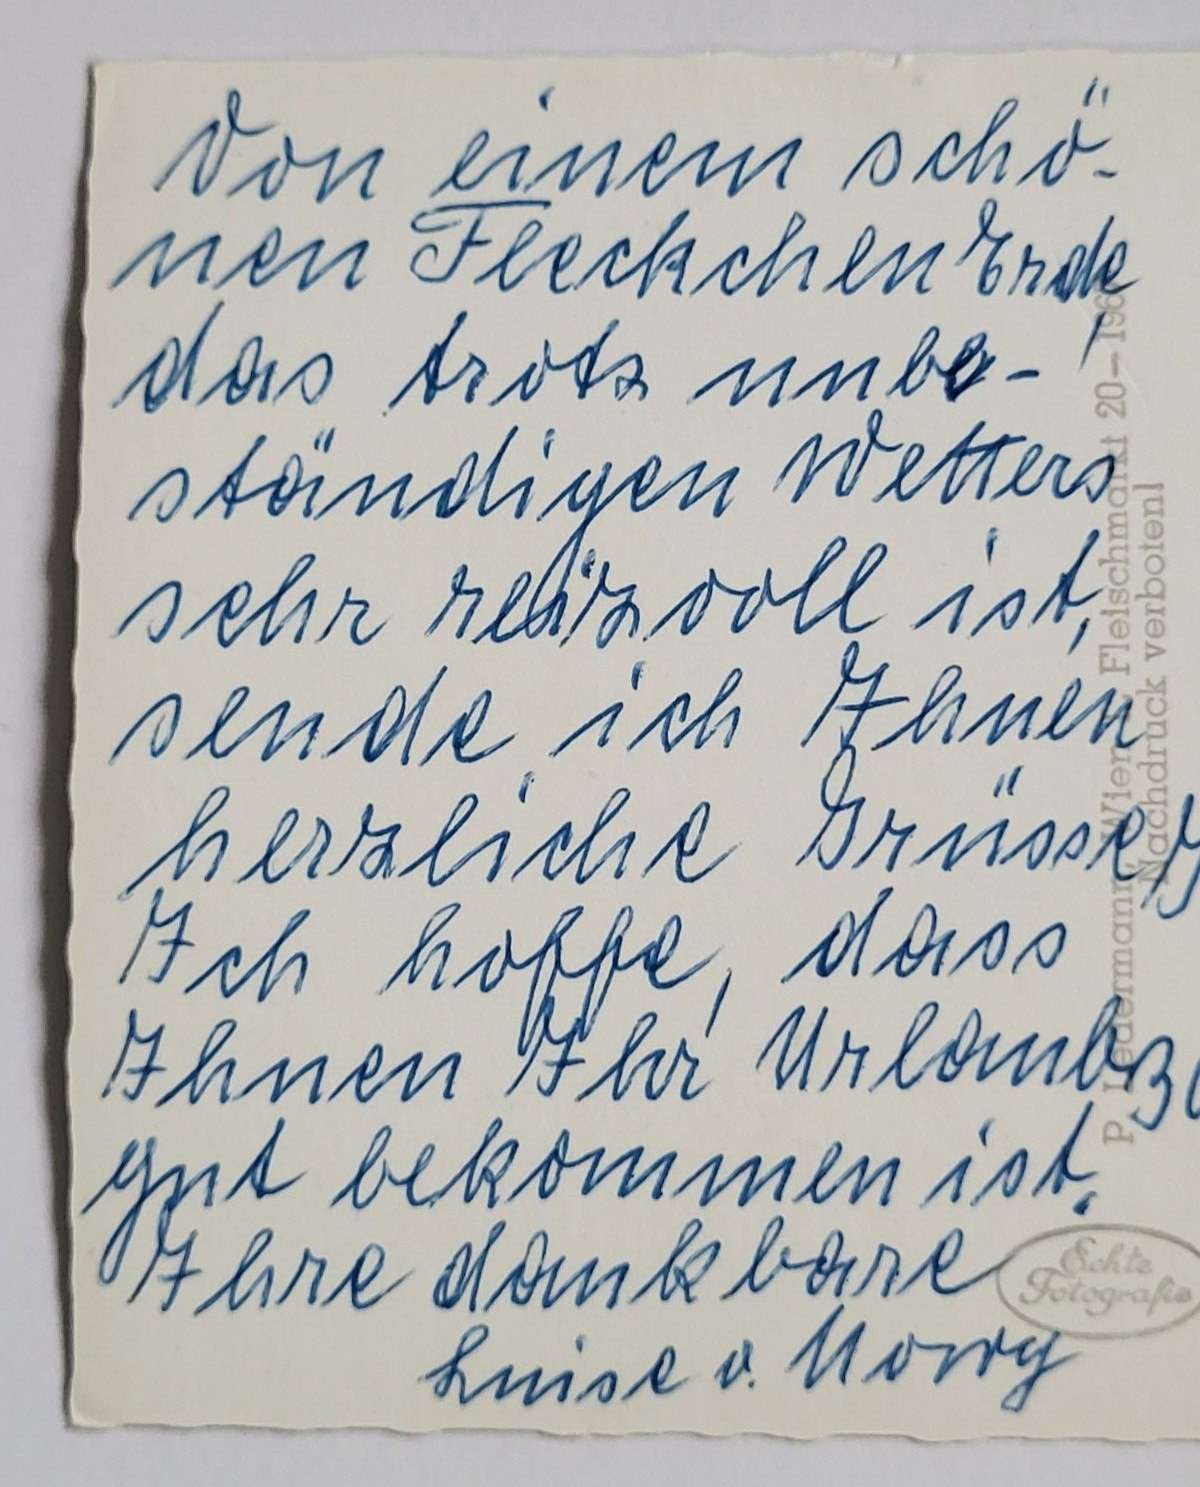 Von einem schö-
nen Fleckchen Erde,
das trotz unbe-
ständigen Wetters
sehr reizvoll ist,
sende ich Ihnen
herzliche Grüsse
Ich hoffe, dass
Ihnen Ihr Urlaub
gut bekommen ist.
Ihre dankbare
Luise v.
P. Ledermann, Wien, Fleischmarkt 20-196
Nachdruck verboten!
Echte
Fotografie